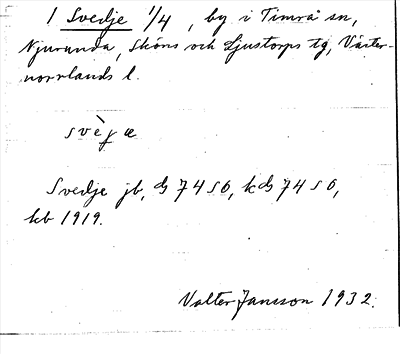 1 Svedje 1/4, by i Timrå sn,
Njurunda, Sköns och Ljustorps tg, Väster-
norrlands l.
svèjæ
Svedje jb, ds 74 s 6, kds 74 s 6,
kb 1919.
Valter Jansson 1932.